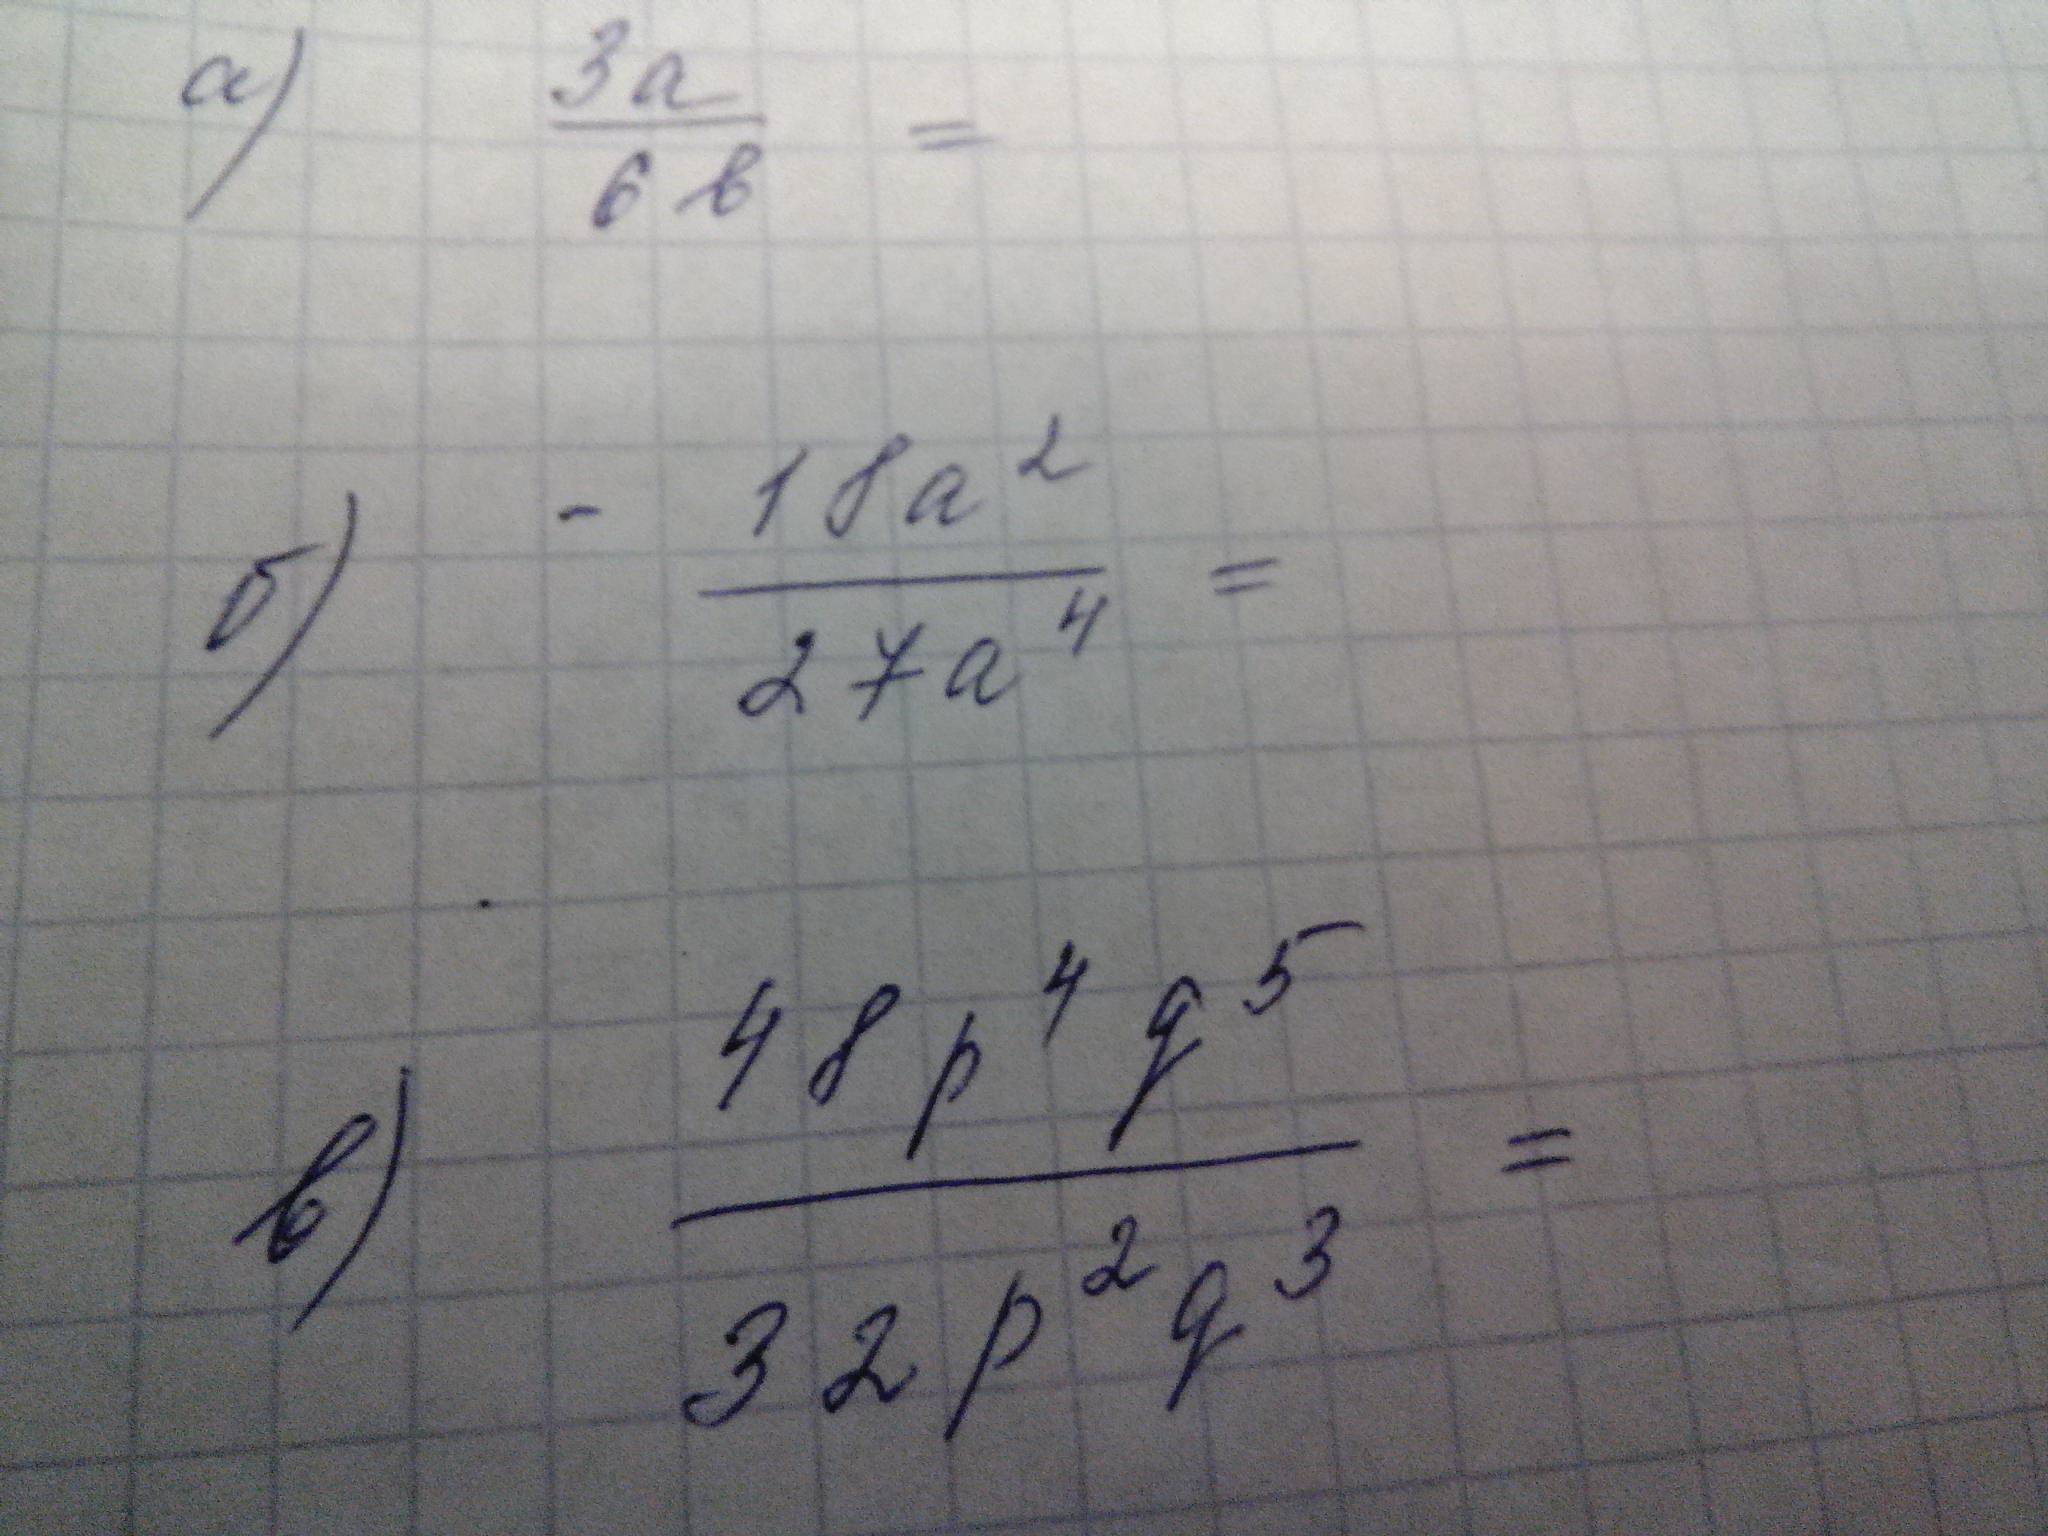 а) 3a
6b =
б) - 18a²
27a⁴ =
в) 48p⁴q⁵
32p²q³ =